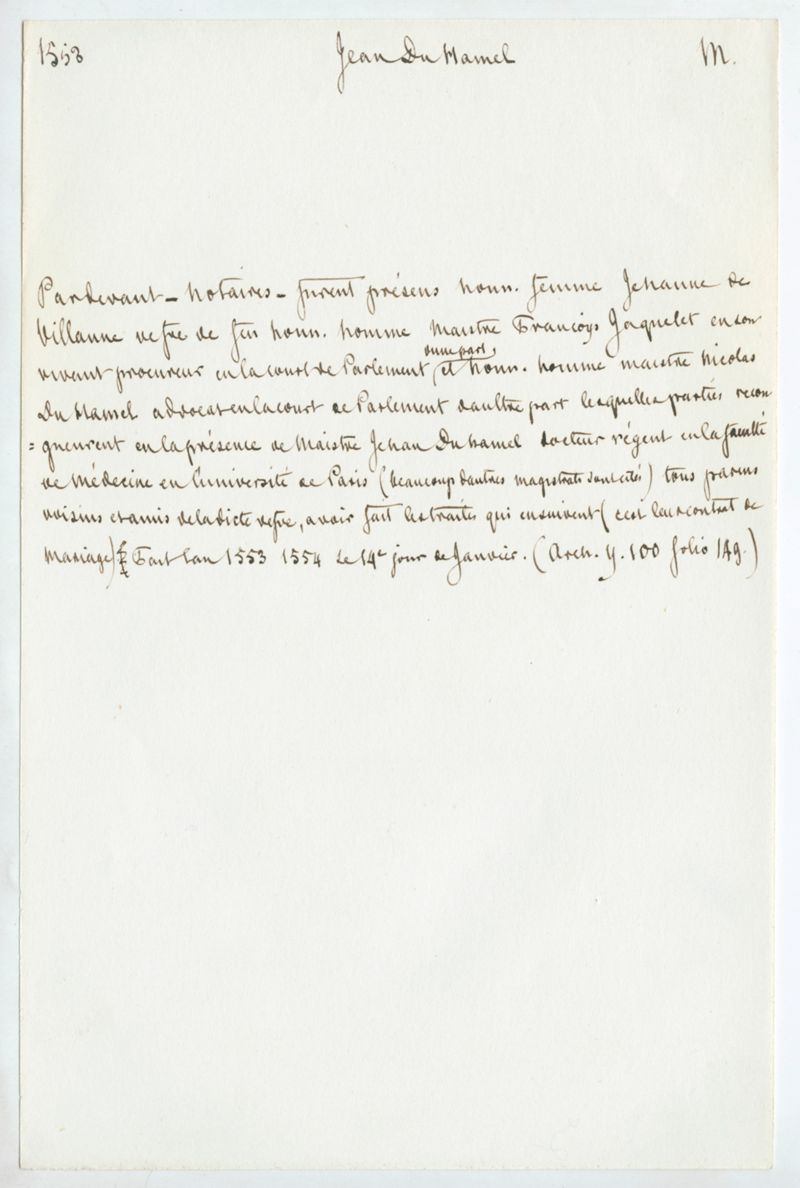 1553 Jean Du Hamel M.
Pardevant – notaires – furent présens honn. femme Jehanne de
Villanne vefve de feu honn. homme Maistre Françoys Jaquelet en son
vivant procureur en la court de Parlement d'une part, et honn. homme maistre Nicolas
Du Hamel advocat en la court de Parlement d'aultre part lesquelles parties recon
= gneurent en la présence de Maistre Jehan Du hamel docteur régent en la faculté
de Médecine en l'université de Paris (beaucoup d'autres magistrats sont cités) tous parens
voisins et amis de la dicte vefve, avoir fait les traités qui ensuivent (c'est leur contrat de
Mariage) Fait l'an 1553 1554 le 14e jour de Janvier. (Arch. y. 100 folio 149.)